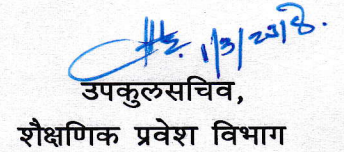 1/3/2018.
उपकुलसचिव,
शैक्षणिक प्रवेश विभाग